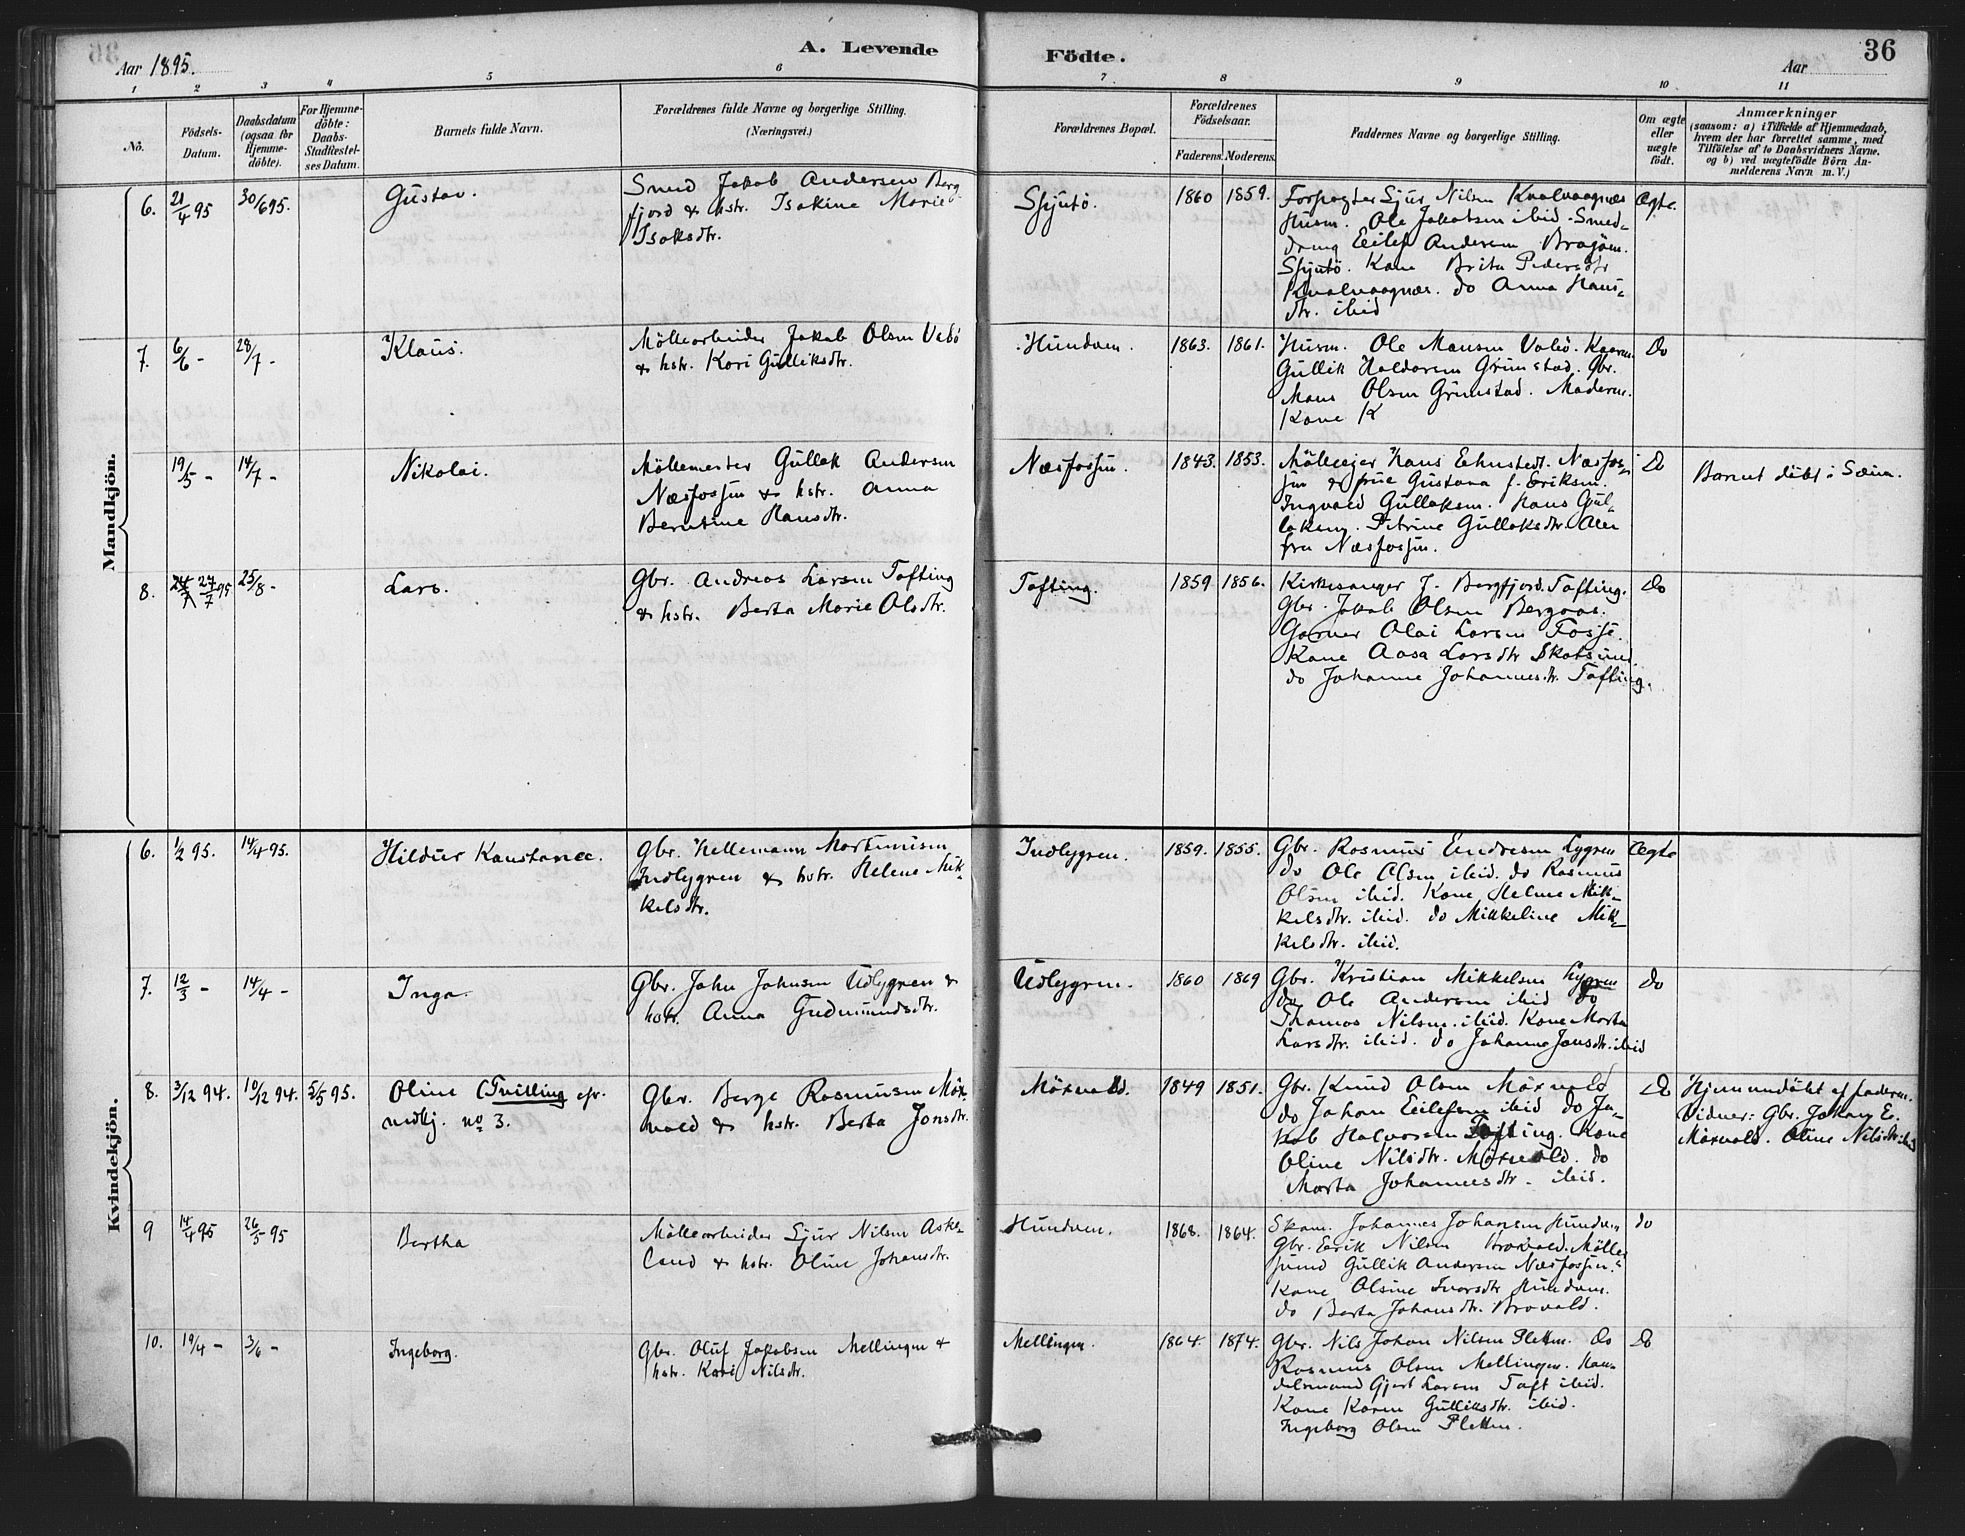 36
Aar 1895.
A. Levende
Födte.
Aar
36
1 2 3 4 5 6 7 8 9 10 11
No.
Födsels-
Datum.
Daabsdatum
(ogsaa for
Hjemme-
döbte).
For Hjemme-
döbte:
Daabs-
Stadfestel-
ses Datum.
Barnets fulde Navn.
Forældrenes fulde Navne og borgerlige Stilling.
(Næringsvei.)
Forældrenes Bopæl.
Forældrenes
Födselsaar.
Faderens. Moderens.
Faddernes Navne og borgerlige Stilling.
Om ægte
eller
uægte
födt.
Anmærkninger
(saasom: a) i Tilfælde af Hjemmedaab,
hvem der har forrettet samme, med
Tilföielse af to Daabsvidners Navne.
og b) ved uægtefödte Börn An-
melderens Navn m. V.)
Mandkjön.
6.
21/4 95
30/6 95.
Gustav.
Smed Jakob Andersen Berg-
fjord & hstr. Isakine Marie
Isaksdtr.
Skjutö.
1860
1859.
Forpagter Sjur Nilsen Kvalvaagnæs
Husm. Ole Jakobsen ibid. Smed-
dreng Eilef Andersen
Skjutö. Kone Brita Pedersdtr
Kvalvaagnæs. do Anna Hans-
dtr. ibid
Ægte.
7.
6/6 -
28/7 -
Klaus.
Mölleorbeider Jakob Olsen Vabö
& hstr. Kari Gulliksdtr.
Hundven.
1863.
1861.
Husm. Ole Monsen Vabö.
Gullik Haldorsen Grimstad. Gbr.
Mons Olsen Grimstad. Moderen.
Kone K
Do
19/5 -
14/7 -
Nikolai.
Möllemester Gullak Andersen
Næsfossen & hstr. Anna
Berntine Hansdtr.
Næsfossen.
1843.
1853.
Mölleeier Hans Næsfos-
sen & frue Gustava f. Eriksen.
Ingvald Gullaksen. Hans Gul-
laksen. Petrine Gullaksdtr. Alle
fra Næsfossen.
Do
Barnet döbt i Sæim.
8.
24/7 95
25/8 -
Lars.
Gbr. Andreas Larsen Tofting
& hstr. Berta Marie Olsdtr.
Tofting.
1859
1856.
Kirkesanger J. Bergfjord. Tofting.
Gbr. Jakob Olsen Bergaas.
Garver Olai Larsen Fosse.
Kone Aasa Larsdtr Skotsund.
do Johanne Johannesdtr. Tofting.
Do
Kvindekjön.
6.
1/2 95.
14/4 95.
Hildur Konstance.
Gbr. Hellemann Mortinusen
Indlygren & hstr. Helene Mik-
kelsdtr.
Indlygren.
1859.
1855.
Gbr. Rasmus Endresen Lygren
do Ole Olsen ibid. do Rasmus
Olsen ibid. Kone Helene Mik-
kelsdtr. ibid. do Mikkeline Mik-
kelsdtr. ibid.
Ægte
7.
12/3 -
14/4 -
Inga.
Gbr. John Johnsen Udlygren &
hstr. Anna Gudmundsdtr.
Udlygren.
1860
1869
Gbr. Kristian Mikkelsen Lygren
do Ole Andersen ibid do
Thomas Nilsen ibid. Kone Marta
Larsdtr. ibid. do Johanne Jonsdtr. ibid
do
8.
3/12 94.
10/12 94.
5/5 95.
Oline (Tvilling cfr.
mdkj. no 3.
Gbr. Berge Rasmusen Möx-
vold & hstr. Berta Jonsdtr.
Möxvold.
1849
1851.
Gbr. Knud Olsen Möxvold
do Johan Eilefsen ibid do Ja-
kob Halvorsen Tofting. Kone
Oline Nilsdtr. Möxvold. do
Marta Johannesdtr. ibid.
Do
Hjemmedöbt af faderen.
Vidner: Gbr. Johan E.
Möxvold. Oline Nilsdtr. ibid
9
14/4 95
26/5 95
Bertha
Mölleorbeider Sjur Nilsen Aske-
land & hstr. Oline Johansdtr.
Hundven.
1868.
1864.
Skom. Johannes Johansen Hundven
Gbr. Eerik Nilsen Brovold. Mölle-
svend Gullik Andersen Næsfossen.
Kone Olsine Ivarsdtr Hundven.
do Berta Johansdtr. Brovold.
do
10.
19/4 -
3/6 -
Ingeborg.
Gbr. Oluf Jakobsen Mellingen &
hstr. Kari Nilsdtr.
Mellingen.
1864.
1874.
Gbr. Nils Johan Nilsen Pletten. do
Rasmus Olsen Mellingen. Han-
delsmand Gjert Larsen Toft ibid.
Kone Karen Gulliksdtr. ibid.
Ingeborg Olsen Pletten.
Do